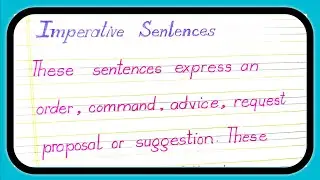 Imperative Sentences
These sentences express an
order, command, advice, request
proposal or suggestion. These